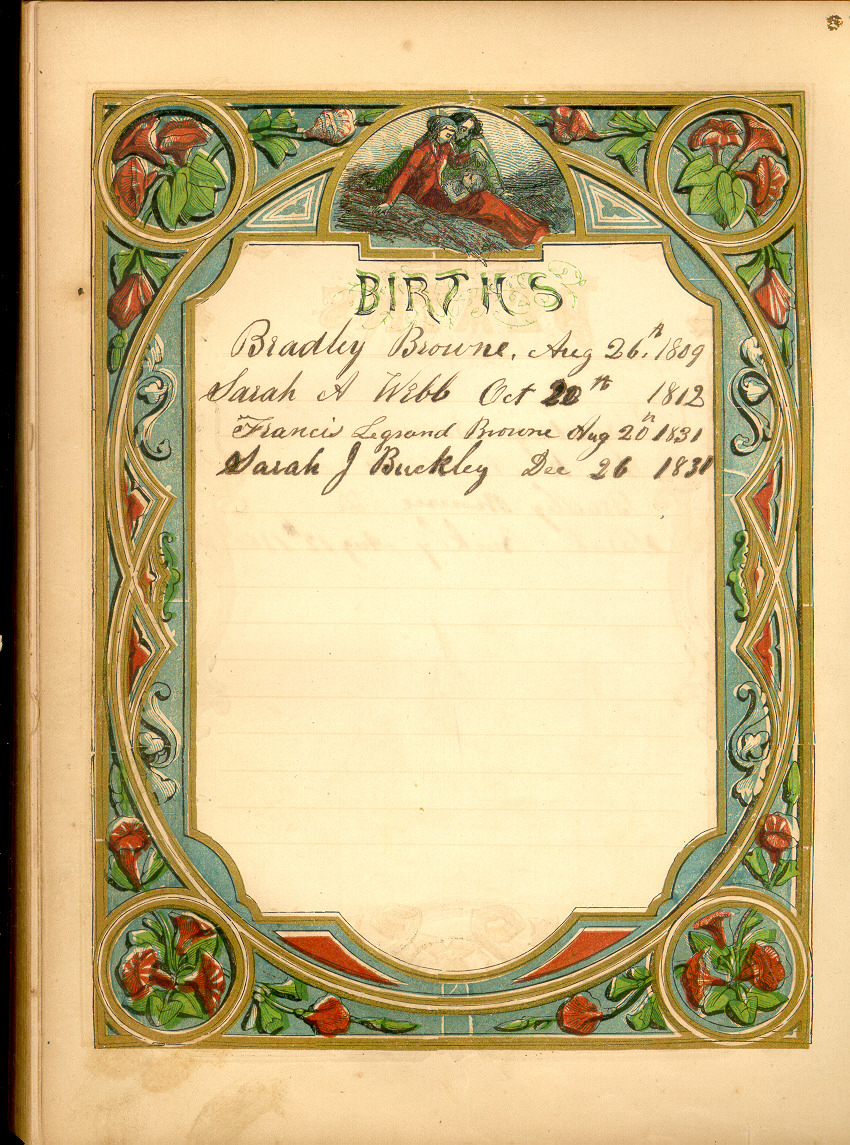 BIRTHS
Bradley Browne, Aug 26, th 1809
Sarah A Webb Oct 20 th 1812
Francis Legrand Browne Aug 20 th 1831
Sarah J Buckley Dec 26 1831